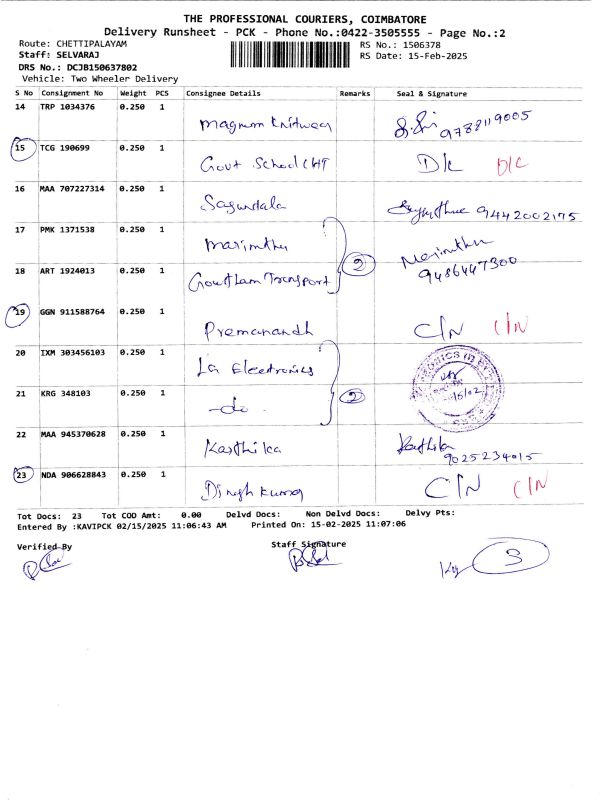 THE PROFESSIONAL COURIERS, COIMBATORE
Delivery Runsheet - PCK - Phone No.:0422-3505555 - Page No.:2
Route: CHETTIPALAYAM RS No.: 1506378
Staff: SELVARAJ RS Date: 15-Feb-2025
DRS No.: DCJB150637802
Vehicle: Two Wheeler Delivery
S No Consignment No Weight PCS Consignee Details Remarks Seal & Signature
14 TRP 1034376 0.250 1
Magnum Knitwear 9788119005
15 TCG 190699 0.250 1
Govt School CHT D/C D/C
16 MAA 707227314 0.250 1
Sagundala 9442002175
17 PMK 1371538 0.250 1
Marimthu Marimuthu
2
18 ART 1924013 0.250 1 9486447300
Gowtham Transport
19 GGN 911588764 0.250 1
Premanandh C/N C/N
20 IXM 303456103 0.250 1
LG Electronics
21 KRG 348103 0.250 1
-do- 2
22 MAA 945370628 0.250 1
Karthika Karthika
9025234015
23 NDA 906628843 0.250 1
Dinesh Kumar C/N C/N
Tot Docs: 23 Tot COD Amt: 0.00 Delvd Docs: Non Delvd Docs: Delvy Pts:
Entered By :KAVIPCK 02/15/2025 11:06:43 AM Printed On: 15-02-2025 11:07:06
Verified By Staff Signature
3